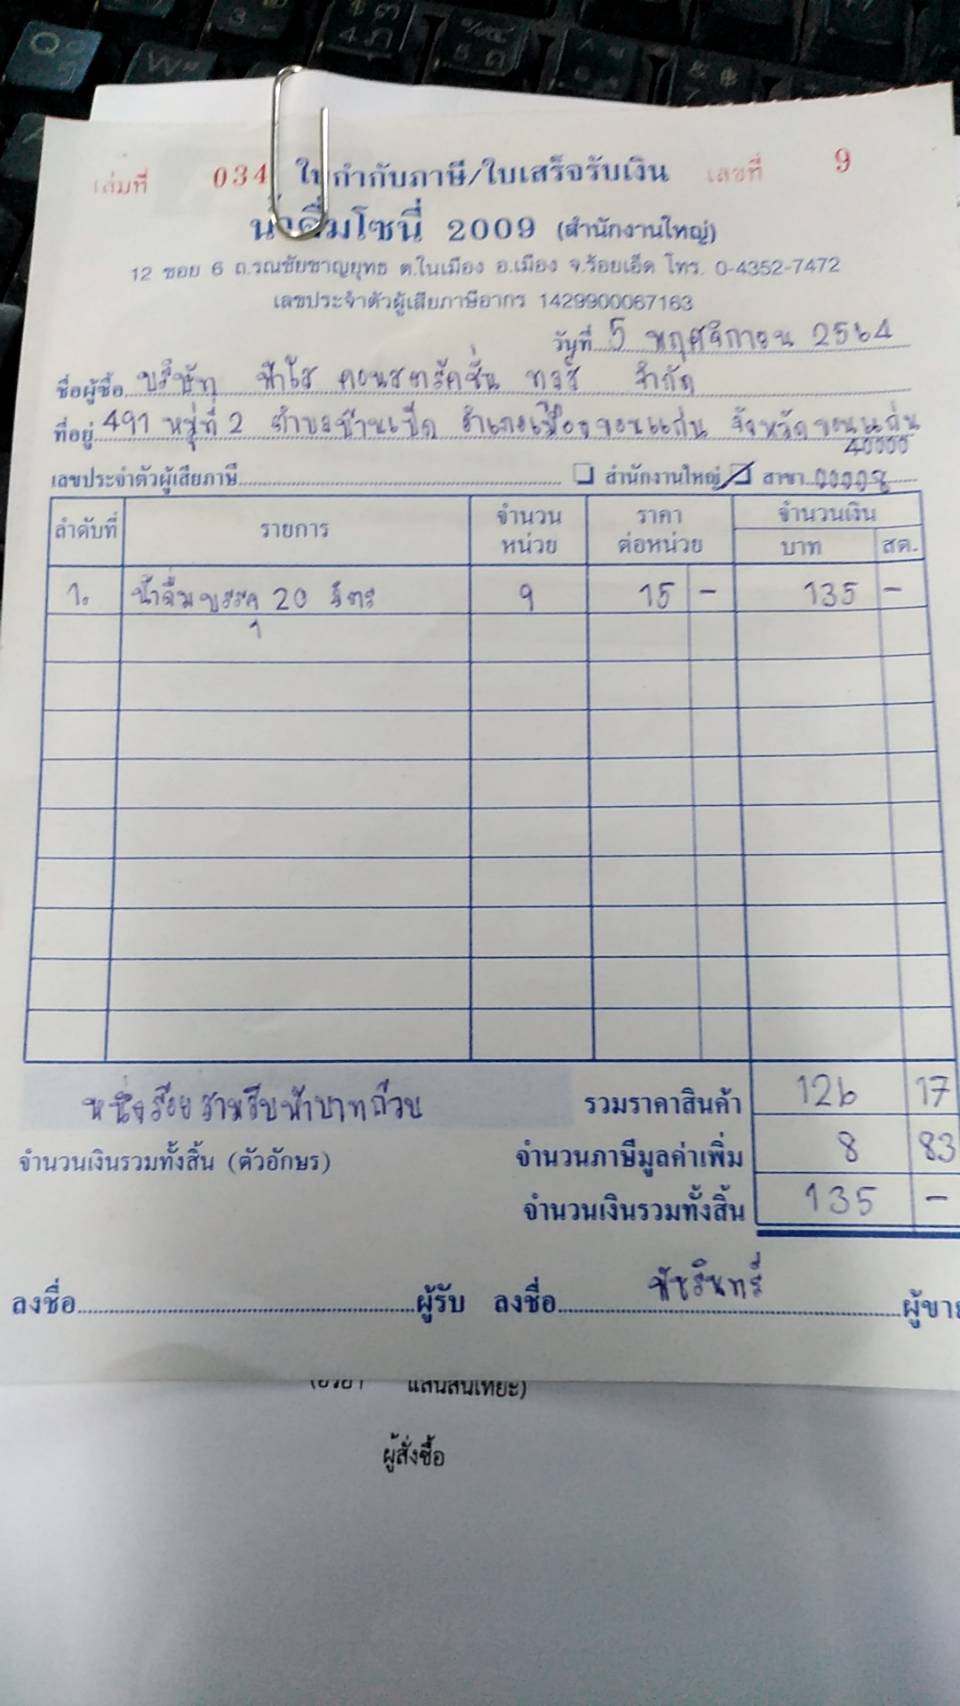 เล่มที่ 034 ใบกำกับภาษี/ใบเสร็จรับเงิน เลขที่ 9
น้ำดื่มโซนี่ 2009 (สำนักงานใหญ่)
12 ซอย 6 ถ.รณชัยชาญยุทธ ต.ในเมือง อ.เมือง จ.ร้อยเอ็ด โทร. 0-4352-7472
เลขประจำตัวผู้เสียภาษีอากร 1429900067163
วันที่ 5 พฤศจิกายน 2564
ชื่อผู้ซื้อ บริษัท ฟาโส คอนสตรัคชั่น ทูลส์ จำกัด
ที่อยู่ 491 หมู่ที่ 2 ตำบลบ้านเป็ด อำเภอเมืองขอนแก่น จังหวัดขอนแก่น
40000
เลขประจำตัวผู้เสียภาษี สำนักงานใหญ่ สาขา
ลำดับที่ รายการ จำนวน หน่วย ราคา ต่อหน่วย จำนวนเงิน บาท สต.
1. น้ำดื่มบรรจุ 20 ลิตร 9 15 - 135 -
หนึ่งร้อยสามสิบห้าบาทถ้วน รวมราคาสินค้า 126 17
จำนวนเงินรวมทั้งสิ้น (ตัวอักษร) จำนวนภาษีมูลค่าเพิ่ม 8 83
จำนวนเงินรวมทั้งสิ้น 135 -
ลงชื่อ ผู้รับ ลงชื่อ พัชรินทร์ ผู้ขาย
ผู้สั่งซื้อ